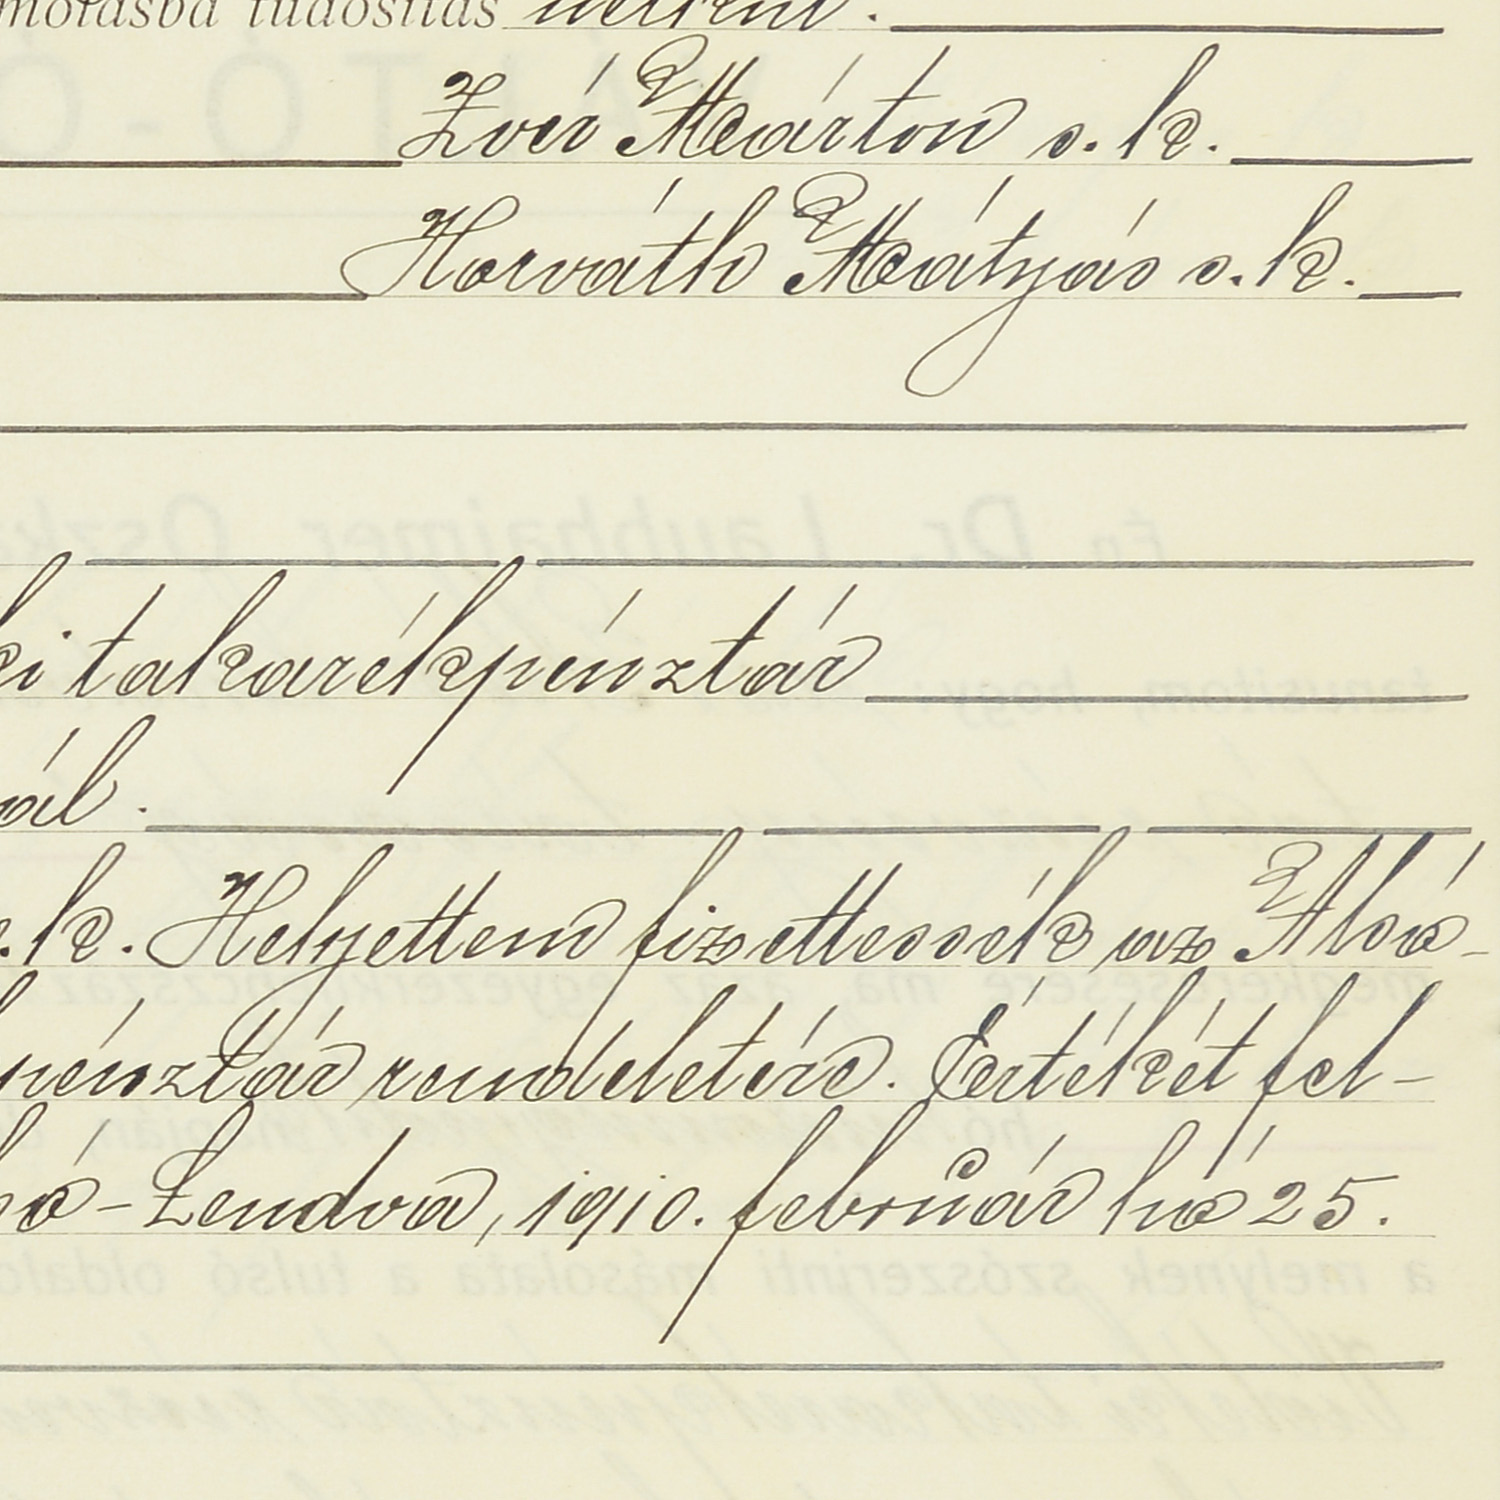 tudósítás nélkül.
Zvér Márton s. k.
Horváth Mátyás s. k.
ki takarékpénztár
ál.
s. k. Helyettem fizettessék az Alsó-
pénztár rendeletére. Értékét fel-
só-Lendva, 1910. február hó 25.